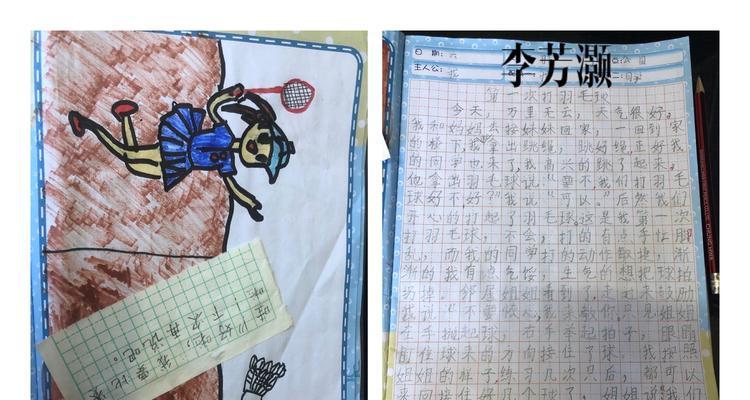 哇
以好啦，我要比赛
下次再说吧。
李芳灏
日期：六
主人公：我
第一次打羽毛球
今天，万里无云，天气很好。
我和妈妈去接妹妹回家，一回到家
的楼下，我拿出跳绳，跳好绳，正好我
的同学也来了，我高兴的跳了起来。
他拿出羽毛球说“要不，我们打羽毛
球好不好？”我说“可以。”后然我们
开心的打起了羽毛球这是我第一次
打羽毛球，不会，打的有点手忙脚
乱，而我的同学打的动作敏捷，渐
渐的我有点气馁，生气的想把球拍
扔掉。邻居姐姐看到了，走过来鼓励
我说“不要恢心，我来教你，只见姐姐
左手抛起球，右手拿起拍子，眼睛
盯住球来的方向接住了球，我按照
姐姐的样子，练习几次只后，都可以
来回接住好几个球了，姐姐说我们